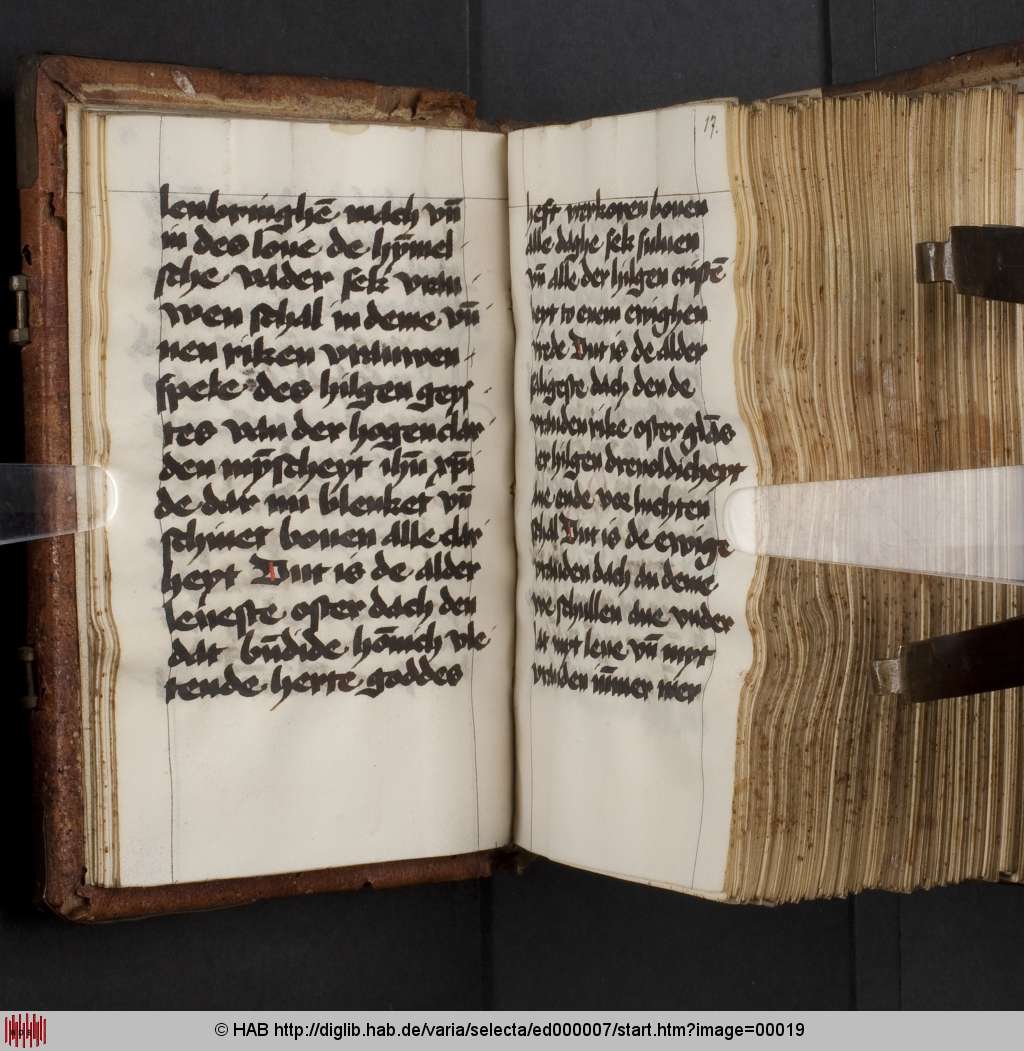 lenbringhē mach vn̄
in des lōue de hȳmel
sche vader sek vrau
wen schal in deme vn̄
nen riken vrauwen
speke des hilgen geys
tes van der hogen clar
den mȳscheyt ihū xp̄i
de dar nu blenket vn̄
schinet bouen alle clar
heyt Dut is de alder
leueste oster dach den
dat būdide hōnich vle
tende herte goddes
17.
heft verkoren bouen
alle daghe sek suluen
vn̄ alle der hilgen cristē
heyt to enem ewighen
vrede Dut is de alder
saligeste dach den de
vrauden rike oster glās
der hilgen dreuoldicheyt
ane ende vor luchten
schal Dut is de ewige
vrauden dach an deme
we schullen ane vnder
lat myt leue vn̄ myt
vrauden īmer mer
© HAB http://diglib.hab.de/varia/selecta/ed000007/start.htm?image=00019